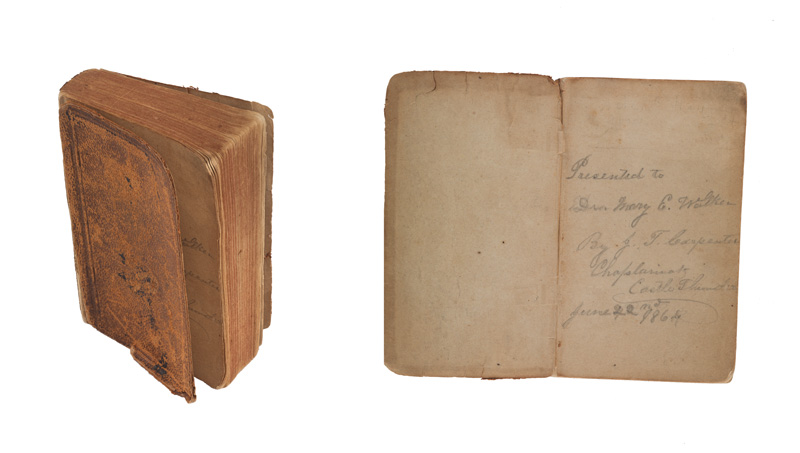 Presented to
Dr. Mary E. Walker
By J. T. Carpenter
Chaplain at
Castle Thunder
June 22nd 1864